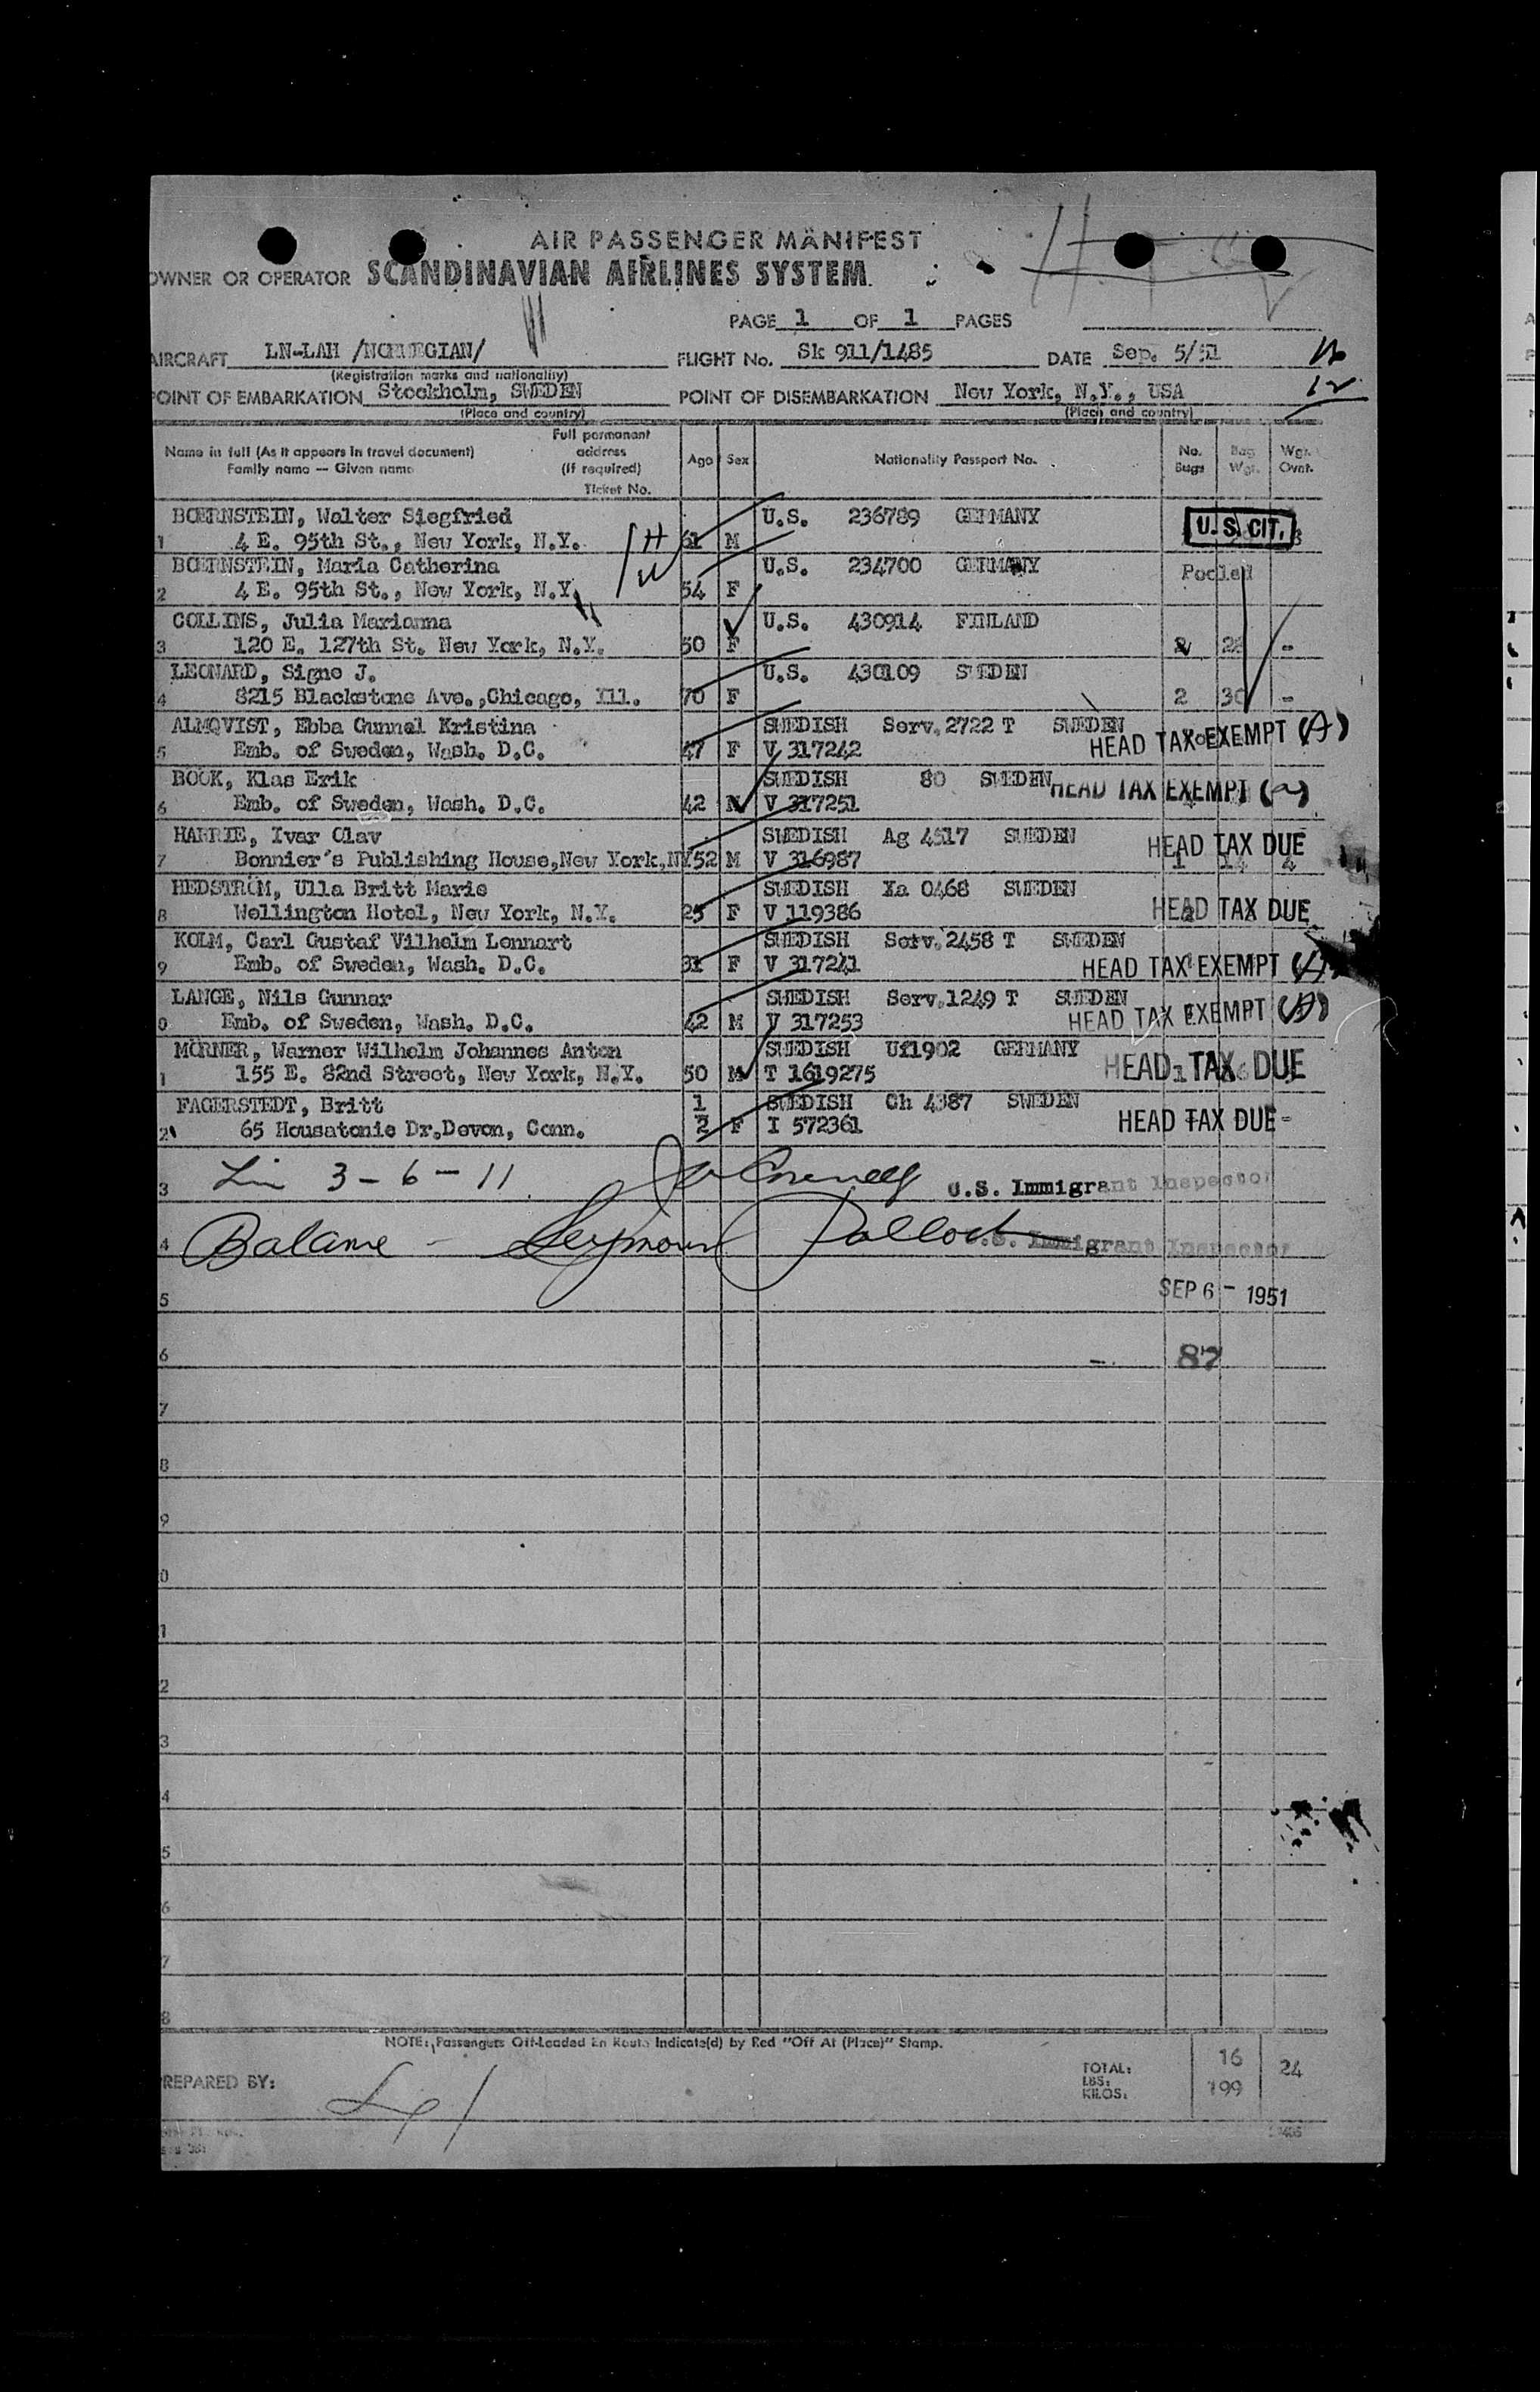 AIR PASSENGER MANIFEST
OWNER OR OPERATOR SCANDINAVIAN AIRLINES SYSTEM
PAGE 1 OF 1 PAGES
AIRCRAFT LN-LAH /NORWEGIAN/ FLIGHT No. Sk 911/1485 DATE Sep. 5/51
(Registration marks and nationality)
POINT OF EMBARKATION Stockholm, SWEDEN POINT OF DISEMBARKATION New York, N.Y., USA
(Place and country) (Place and country)
Name in full (As it appears in travel document) Family name — Given name Full permanent address (If required) Ticket No. Age Sex Nationality Passport No. No. Bags Bag Wgt. Wgt. Ovnt.
BOERNSTEIN, Walter Siegfried U.S. 236789 GERMANY U.S. CIT.
1 4 E. 95th St., New York, N.Y. 61 M
BOERNSTEIN, Maria Catherina U.S. 234700 GERMANY Pooled
2 4 E. 95th St., New York, N.Y. 54 F
COLLINS, Julia Marianna U.S. 430914 FINLAND
3 120 E. 127th St. New York, N.Y. 50 F 2 -
LEONARD, Signe J. U.S. 430109 SWEDEN
4 8215 Blackstone Ave.,Chicago, Ill. 70 F 2 30 -
ALMQVIST, Ebba Gunnel Kristina SWEDISH Serv.2722 T SWEDEN
5 Emb. of Sweden, Wash. D.C. 47 F V 317242 HEAD TAX EXEMPT (A)
BÖÖK, Klas Erik SWEDISH 80 SWEDEN HEAD TAX EXEMPT
6 Emb. of Sweden, Wash. D.C. 42 M V 317251
HARRIE, Ivar Olav SWEDISH Ag 4517 SWEDEN HEAD TAX DUE
7 Bonnier's Publishing House,New York,NY 52 M V 316987 1 14 4
HEDSTRÖM, Ulla Britt Marie SWEDISH Xa 0468 SWEDEN
8 Wellington Hotel, New York, N.Y. 25 F V 119386 HEAD TAX DUE
KOLM, Carl Gustaf Vilhelm Lennart SWEDISH Serv.2458 T SWEDEN
9 Emb. of Sweden, Wash. D.C. 31 F V 317241 HEAD TAX EXEMPT (A)
LANGE, Nils Gunnar SWEDISH Serv.1249 T SWEDEN
0 Emb. of Sweden, Wash. D.C. 42 M V 317253 HEAD TAX EXEMPT (A)
MÖRNER, Warner Wilhelm Johannes Anton SWEDISH Uf1902 GERMANY
1 155 E. 82nd Street, New York, N.Y. 50 M T 1619275 HEAD TAX DUE
FAGERSTEDT, Britt 1/2 SWEDISH Ch 4387 SWEDEN
2 65 Housatonic Dr.Devon, Conn. F I 572361 HEAD TAX DUE -
3 Lin 3-6-11 U.S. Immigrant Inspector
4 Balance - Seymour Pollock U.S. Immigrant Inspector
5 SEP 6 - 1951
6 87
7
8
9
0
1
2
3
4
5
6
7
8
NOTE: Passengers Off-Loaded En Route Indicate(d) by Red "Off At (Place)" Stamp.
PREPARED BY: TOTAL: 16 24
LBS:
KILOS: 199